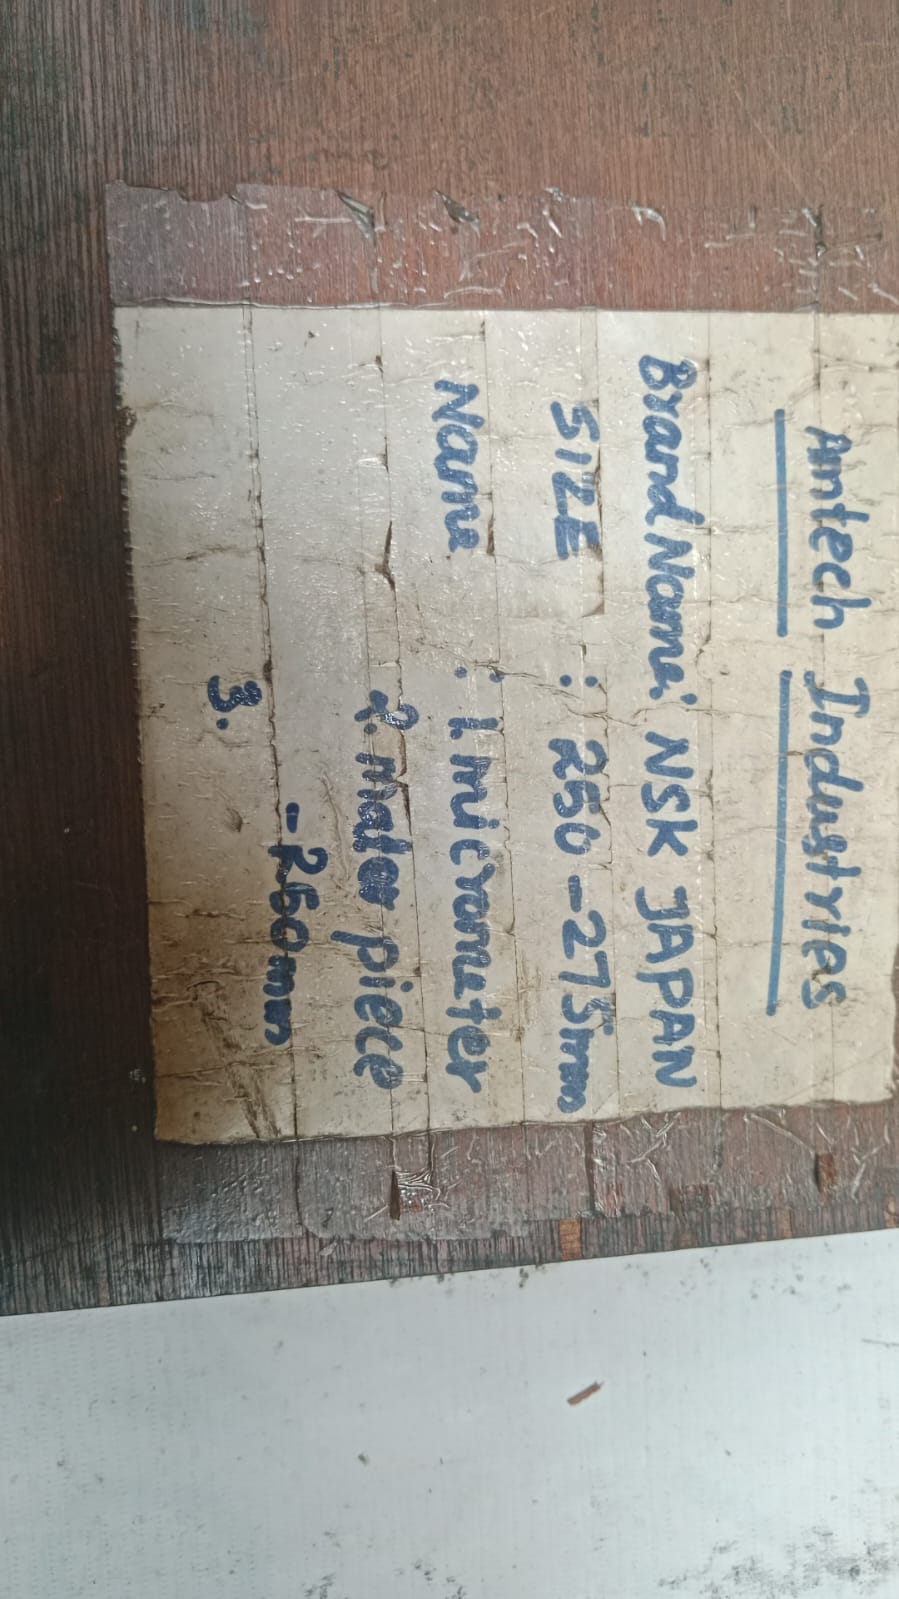 Amtech Industries
Brand Name: NSK JAPAN
SIZE : 250-275mm
Name : 1. Micrometer
2. Master piece
- 250mm
3.